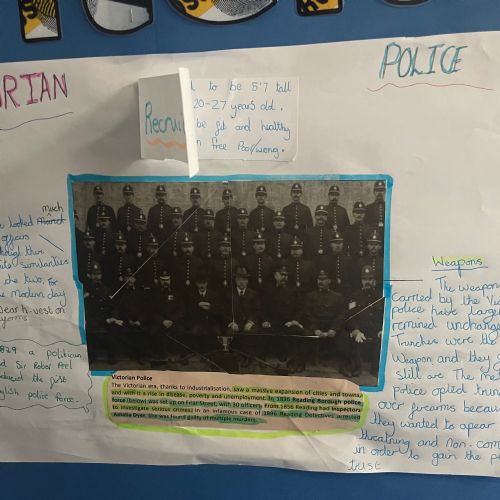 RIAN
POLICE
to be 5'7 tall
20-27 years old.
Recrui
be fit and healthy
free
much
looked
officers
similarities
the two, for
modern day
wear hi-vest on
1829 a politican
Sir Rober Peel
the first
nglish police force.
Victorian Police
The Victorian era, thanks to industrialisation, saw a massive expansion of cities and towns,
and with it a rise in disease, poverty and unemployment. In 1836 Reading Borough police
force (below) was set up on Friar Street, with 30 officers. From 1856 Reading had Inspectors
to investigate serious crimes! In an infamous case of 1896 Reading Detectives arrested
Amelia Dyer. She was found guilty of multiple murders.
Weapons
The weapon
carried by the Vic
police have large
remined unchange
Trunches were the
Weapon and they
still are. The me
police opted trun
over firearms becaus
they wanted to apear
threatning and non-com
in order to gain the p
trust